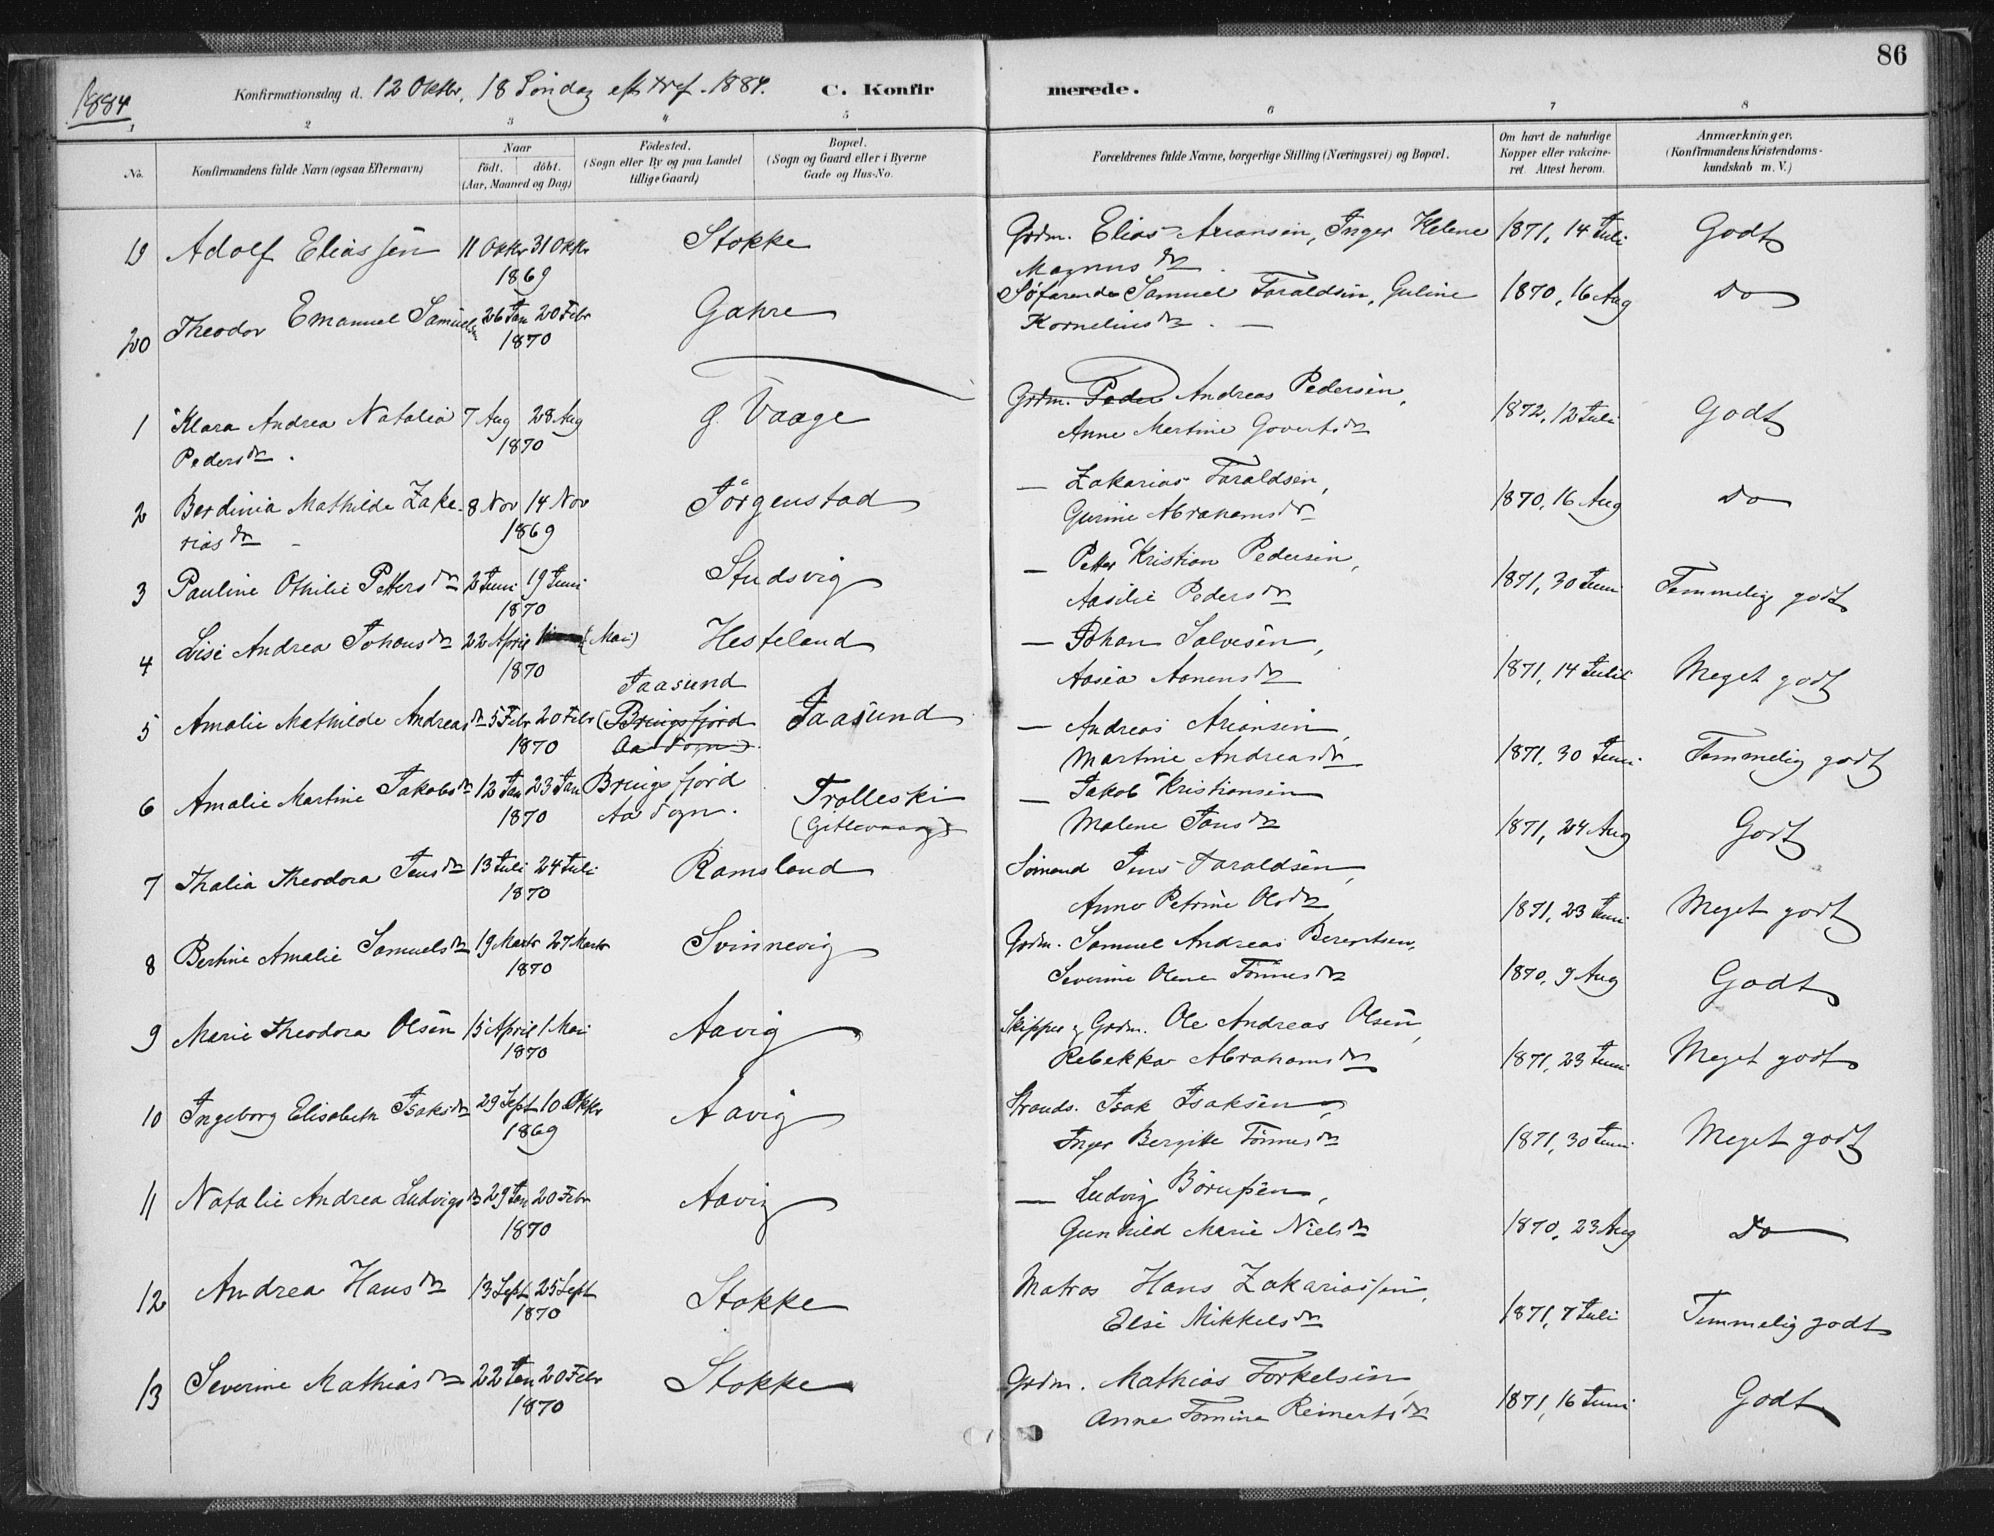 86
1884
Konfirmationsdag d. 12 Oktbr, 18 Söndag eft tref. 1884.
C. Konfir
merede.
1 2 3 4 5 6 7 8
No.
Konfirmandens fulde Navn (ogsaa Efternavn)
Naar
födt. döbt.
(Aar, Maaned og Dag)
Födested.
(Sogn eller By og paa Landet
tillige Gaard)
Bopæl.
(Sogn og Gaard eller i Byerne
Gade og Hus-No.
Forældrenes fulde Navne, borgerlige Stilling (Næringsvei) og Bopæl.
Om havt de naturlige
Kopper eller vakcine-
ret. Attest herom.
Anmærkninger.
(Konfirmandens Kristendoms-
kundskab m. V.)
19 Adolf Eliassen 11 Oktbr 31 Oktbr Stokke Grdm. Elias Ariansen, Inger Helene 1871, 14 Juli Godt
1869 Magnusdtr.
20 Theodor Emanuel Samuelsen 26 Jan 20 Febr Gahre Söfarende Samuel Taraldsen, Guline 1870, 16 Aug do
1870 Korneliusdtr. —
1 Klara Andrea Natalia 7 Aug 28 Aug g. Vaage Grdm. Peder Andreas Pedersen, 1872, 12 Juli Godt
Pedersdtr. 1870 Anne Martine Govertsdtr
2 Berdinia Mathilde Zaka- 8 Nov 14 Nov Jörgenstad — Zakarias Taraldsen, 1870, 16 Aug do
riasdtr 1869 Gurine Abrahamsdtr
3 Pauline Othilie Pettersdtr 2 Juni 19 Juni Studsvig — Petter Kristian Pedersen, 1871, 30 Juni Temmelig godt
1870 Aasilie Pedersdtr
4 Lise Andrea Johansdtr 22 April 1 (Mai) Hesteland — Johan Salvesen, 1871, 14 Juli Meget godt
1870 Aasea Aanensdtr
Jaasund
5 Amalie Mathilde Andreasdtr 5 Febr 20 Febr (Bringsfjord Jaasund — Andreas Ariansen, 1871, 30 Juni Temmelig godt
1870 Aa Sogn) Martine Andreasdtr
6 Amalie Martine Jakobsdtr 12 Jan 23 Jan Bringsfjord Trolleski — Jakob Kristiansen 1871, 24 Aug Godt
1870 Aa Sogn. (Gitlevaag) Malene Jansdtr
7 Thalia Theodora Jensdtr 13 Juli 24 Juli Ramsland Sömand Jens Taraldsen, 1871, 23 Juni Meget godt
1870 Anne Petrine Olsdtr
8 Bertine Amalie Samuelsdtr 19 Marts 27 Marts Svinnevig Grdm. Samuel Andreas Berentsen, 1870, 9 Aug Godt
1870 Severine Olene Tönnesdtr
9 Marie Theodora Olsen 15 April 1 Mai Aavig Skipper & Grdm. Ole Andreas Olsen, 1871, 23 Juni Meget godt
1870 Rebekka Abrahamsdtr
10 Ingeborg Elisabeth Isaksdtr 29 Sept 10 Oktbr Aavig Strands. Isak Isaksen, 1871, 30 Juni Meget godt
1869 Inger Bergitte Tönnesdtr
11 Natalie Andrea Ludvigsdtr 29 Jan 20 Febr Aavig — Ludvig Börresen, 1870, 23 Aug Do
1870 Gunhild Marie Nielsdtr
12 Andrea Hansdtr 13 Sept 25 Sept Stokke Matros Hans Zakariassen, 1871, 7 Juli Temmelig godt
1870 Elsi Mikkelsdtr
13 Severine Mathiasdtr 22 Jan 20 Febr Stokke Grdm. Mathias Torkelsen, 1871, 16 Juni Godt
1870 Anne Tomine Reinertsdtr